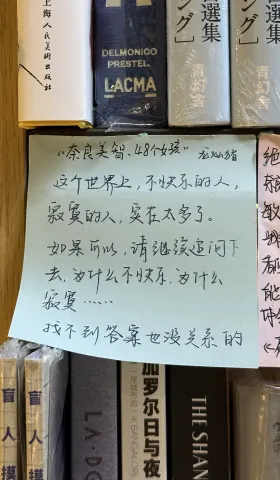 上海人民美術出版社
DELMONICO
PRESTEL
LACMA
選集
ング」
青幻舎
選集
ング」
青幻舎
“奈良美智.48个女孩”
这个世界上，不快乐的人，
寂寞的人，实在太多了。
如果可以，请继续追问下
去，为什么不快乐，为什么
寂寞……
找不到答案也没关系的
盲人摸
盲人摸
LA・DO
加罗尔日与夜
THE SHAN